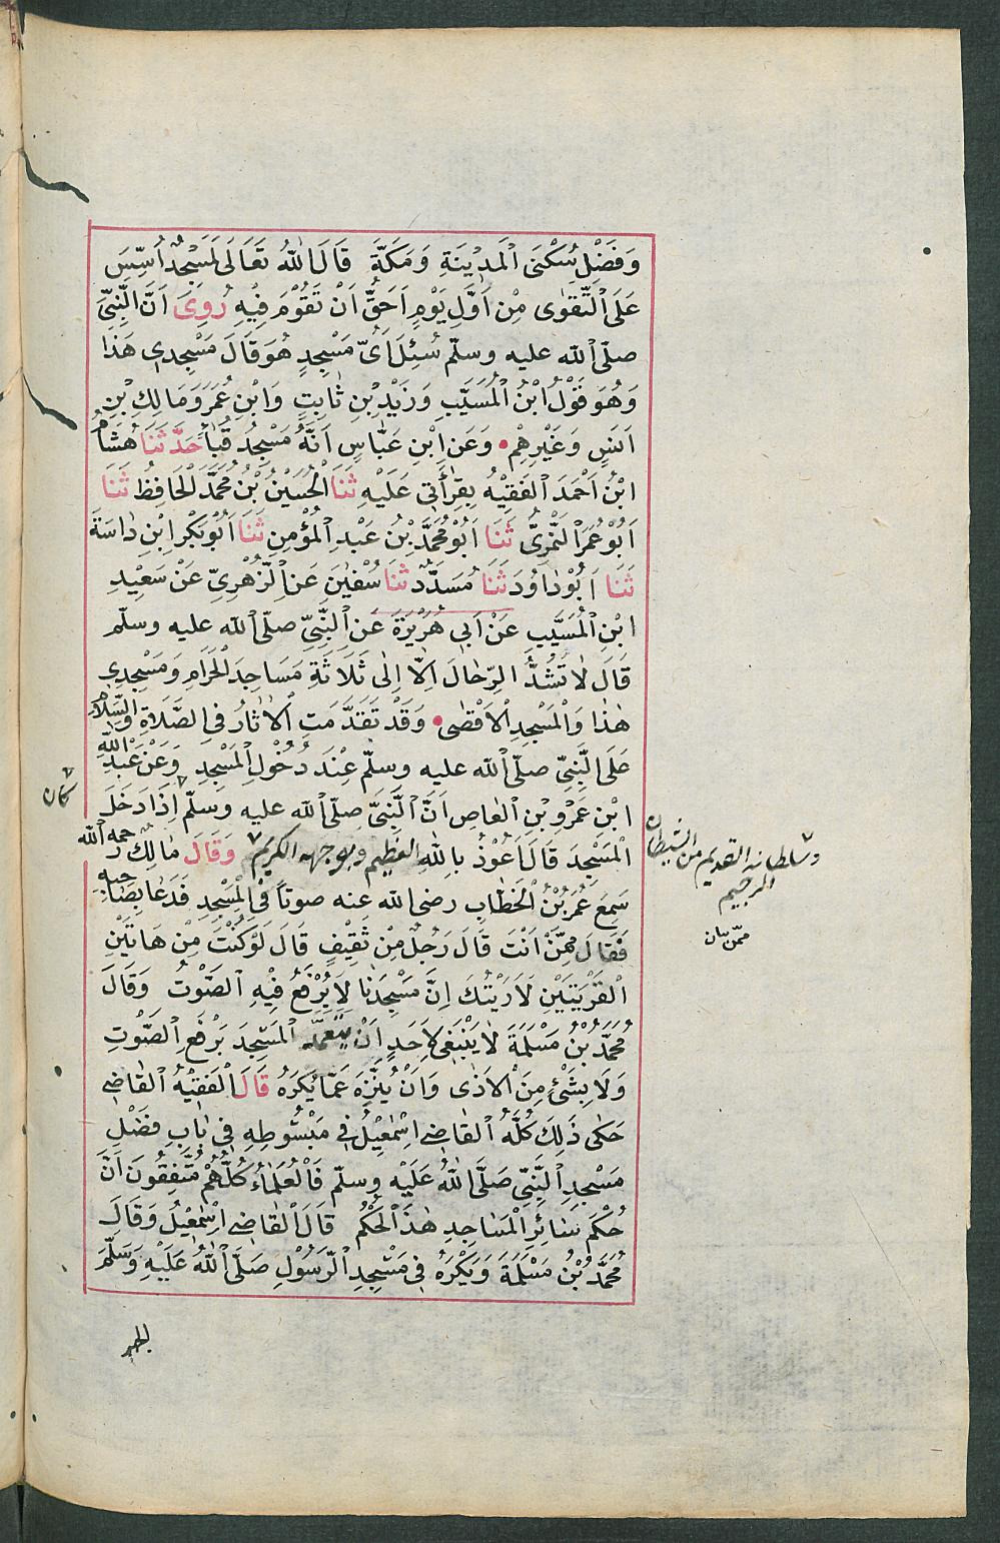 وَفَضْلِ سُكْنَى الْمَدِيْنَةِ وَمَكَّةَ قَالَ اللّٰهُ تَعَالَى لَمَسْجِدٌ اُسِّسَ
عَلَى التَّقْوٰى مِنْ اَوَّلِ يَوْمٍ اَحَقُّ اَنْ تَقُوْمَ فِيْهِ رُوِىَ اَنَّ النَّبِىَّ
صلّى الله عليه وسلّم سُئِلَ اَىُّ مَسْجِدٍ هُوَ قَالَ مَسْجِدِى هَذَا
وَهُوَ قَوْلُ ابْنُ الْمُسَيَّبِ وَزَيْدِ بْنِ ثَابِتٍ وَابْنِ عُمَرَ وَمَالِكِ بْنِ
اَنَسٍ وَغَيْرِهِمْ وَعَنِ ابْنِ عَبَّاسٍ اَنَّهُ مَسْجِدُ قُبَاءَ حَدَّثَنَا هِشَامُ
ابْنُ اَحْمَدَ الْفَقِيْهُ بِقِرَاَتِى عَلَيْهِ ثَنَا الْحُسَيْنُ بْنُ مُحَمَّدَ الْحَافِظُ ثَنَا
اَبُوْ عُمَرَ النَّمَرِىُّ ثَنَا اَبُوْ مُحَمَّدَ بْنُ عَبْدِ الْمُؤْمِنِ ثَنَا اَبُوْ بَكْرِ ابْنِ دَاسَةَ
ثَنَا اَبُوْ دَاوُدَ ثَنَا مُسَدَّدٌ ثَنَا سُفْيٰنَ عَنِ الزُّهْرِىِّ عَنْ سَعِيْدِ
ابْنِ الْمُسَيَّبِ عَنْ اَبِى هُرَيْرَةَ عَنِ النَّبِىِّ صلّى الله عليه وسلّم
قَالَ لٰا تُشَدُّ الرِّحَالَ اِلَّا اِلٰى ثَلَاثَةِ مَسَاجِدَ الْحَرَامِ وَمَسْجِدِى
هٰذَا وَالْمَسْجِدِ الْاَقْصٰى وَقَدْ تَقَدَّمَتِ الْاٰثَارُ فِى الصَّلَاةِ وَالسَّلَامِ
عَلَى النَّبِىِّ صلّى الله عليه وسلّم عِنْدَ دُخُوْلِ الْمَسْجِدِ وَعَنْ عَبْدِ اللّٰهِ
ابْنِ عَمْرِو بْنِ الْعَاصِ اَنَّ النَّبِىَّ صلّى الله عليه وسلّم اِذَا دَخَلَ
كان
الْمَسْجِدَ قَالَ اَعُوْذُ بِاللّٰهِ العظيم وبوجهه الكريم وَقَالَ مَالِكٌ رحمه الله
وسلطانه القديم من الشيطان
الرجيم
سَمِعَ عُمَرُ بْنُ الْخَطَّابِ رضى الله عنه صوتاً فِى الْمَسْجِدِ فَدَعَا بِصَاحِبِهِ
فَقَالَ مِمَّنْ اَنْتَ قَالَ رَجُلٌ مِنْ ثَقِيْفٍ قَالَ لَوْ كُنْتَ مِنْ هَاتَيْنِ
ممّن بيان
الْقَرْيَتَيْنِ لَاَدَّبْتُكَ اِنَّ مَسْجِدَنَا لَا يُرْفَعُ فِيْهِ الصَّوْتُ وَقَالَ
مُحَمَّدُ بْنُ مَسْلَمَةَ لَا يَنْبَغِى لِاَحَدٍ اَنْ يَتَعَمَّدَ الْمَسْجِدَ بِرَفْعِ الصَّوْتِ
وَلَا بِشَىْءٍ مِنَ الْاَذَى وَاَنْ يُنَزِّهَ عَمَّا يُكْرَهُ قَالَ الْفَقِيْهُ الْقَاضِى
حَكَى ذَلِكَ كُلَّهُ الْقَاضِى اِسْمٰعِيْلُ فِى مَبْسُوْطِهِ فِى بَابِ فَضْلِ
مَسْجِدِ النَّبِىِّ صَلَّى اللّٰهُ عَلَيْهِ وسلّم فَالْعُلَمَاءُ كُلُّهُمْ مُتَّفِقُوْنَ اَنَّ
حُكْمَ سَائِرِ الْمَسَاجِدِ هٰذَا الْحُكْمُ قَالَ الْقَاضِى اِسْمٰعِيْلُ وَقَالَ
مُحَمَّدُ بْنُ مَسْلَمَةَ وَيَكْرَهُ فِى مَسْجِدِ الرَّسُوْلِ صَلَّى اللّٰهُ عَلَيْهِ وَسَلَّمَ
الجهر